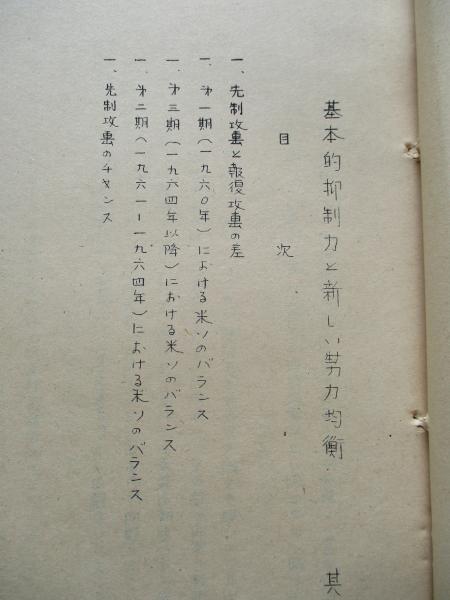 基本的抑制力と新しい勢力均衡
其
目次
一、先制攻撃と報復攻撃の差
一、第一期(一九六〇年)における米ソのバランス
一、第三期(一九六四年以降)における米ソのバランス
一、第二期(一九六一ー一九六四年)における米ソのバランス
一、先制攻撃のチャンス